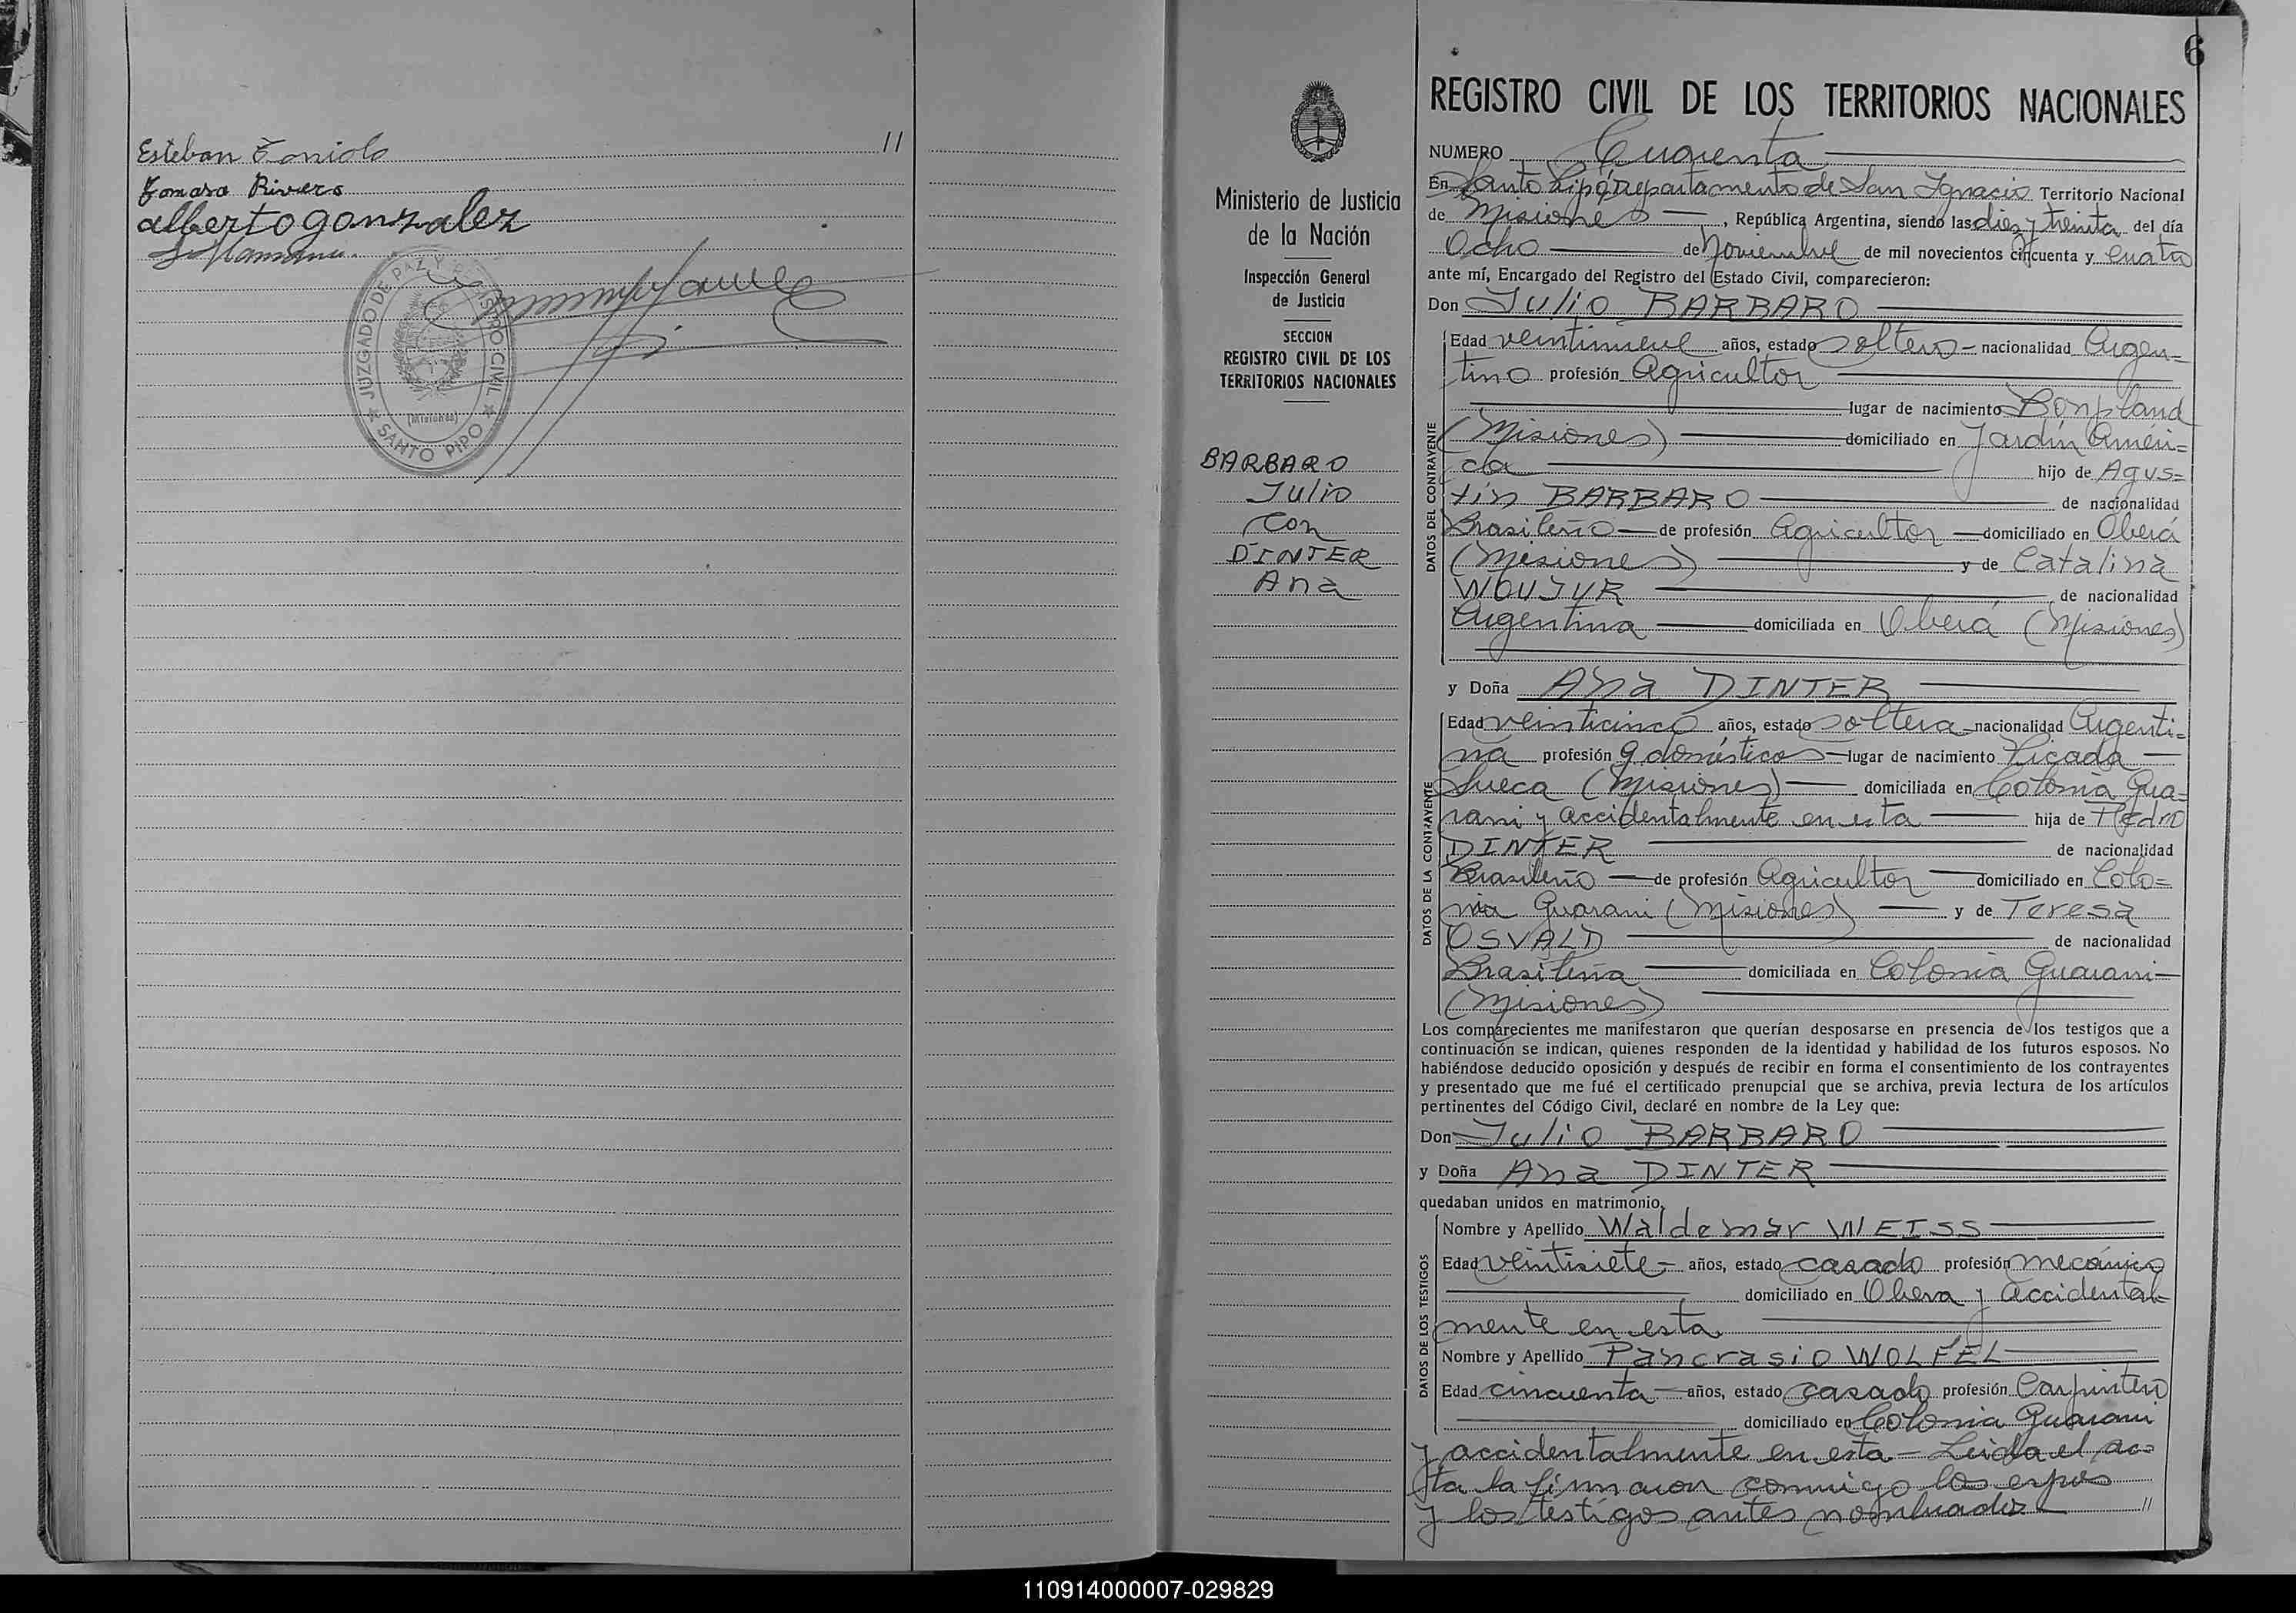 Esteban Toniolo 11
Tomasa Rivero
alberto gonzalez
JUZGADO DE PAZ Y REGISTRO CIVIL
(Misiones)
SANTO PIPO
6
REGISTRO CIVIL DE LOS TERRITORIOS NACIONALES
Ministerio de Justicia
de la Nación
Inspección General
de Justicia
SECCION
REGISTRO CIVIL DE LOS
TERRITORIOS NACIONALES
BARBARO
Julio
Con
DINTER
Ana
NUMERO
En Santo Pipó Departamento de San Ignacio Territorio Nacional
de Misiones, República Argentina, siendo las diez y treinta del día
Ocho de Noviembre de mil novecientos cincuenta y cuatro
ante mí, Encargado del Registro del Estado Civil, comparecieron:
Don Julio BARBARO
DATOS DEL CONTRAYENTE
Edad veintinueve años, estado soltero - nacionalidad Argen=
tino profesión Agricultor
lugar de nacimiento Bonpland
(Misiones) domiciliado en Jardín Améri=
ca hijo de Agus=
tín BARBARO de nacionalidad
Brasileño de profesión Agricultor domiciliado en Oberá
(Misiones) y de Catalina
WOUJUR de nacionalidad
Argentina domiciliada en Oberá (Misiones)
y Doña Ana DINTER
DATOS DE LA CONTRAYENTE
Edad veinticinco años, estado soltera nacionalidad Argenti=
na profesión q domésticos lugar de nacimiento Picada
Sueca (Misiones) domiciliada en Colonia Gua=
rani y accidentalmente en esta hija de Pedro
DINTER de nacionalidad
Brasileño de profesión Agricultor domiciliado en Colo=
nia Guarani (Misiones) y de Teresa
OSVALD de nacionalidad
Brasileña domiciliada en Colonia Guarani
(Misiones)
Los comparecientes me manifestaron que querían desposarse en presencia de los testigos que a
continuación se indican, quienes responden de la identidad y habilidad de los futuros esposos. No
habiéndose deducido oposición y después de recibir en forma el consentimiento de los contrayentes
y presentado que me fué el certificado prenupcial que se archiva, previa lectura de los artículos
pertinentes del Código Civil, declaré en nombre de la Ley que:
Don Julio BARBARO
y Doña Ana DINTER
quedaban unidos en matrimonio.
DATOS DE LOS TESTIGOS
Nombre y Apellido Waldemar WEISS
Edad veintisiete - años, estado casado profesión mecánico
domiciliado en Obera y accidental=
mente en esta
Nombre y Apellido Pancrasio WOLFEL
Edad cincuenta años, estado casado profesión Carpintero
domiciliado en Colonia Guarani
y accidentalmente en esta - Leida el ac=
ta la firmaron conmigo los espos
y los testigos antes nombrados 11
110914000007-029829